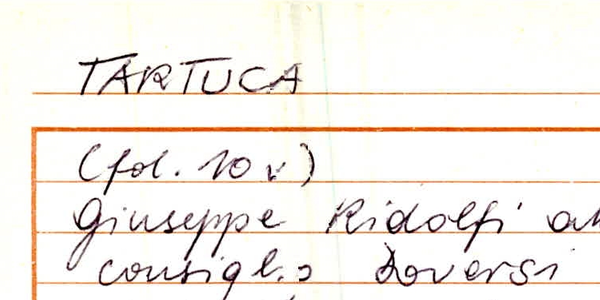 TARTUCA
(fol. 10 v)
Giuseppe Ridolfi
consiglio doversi